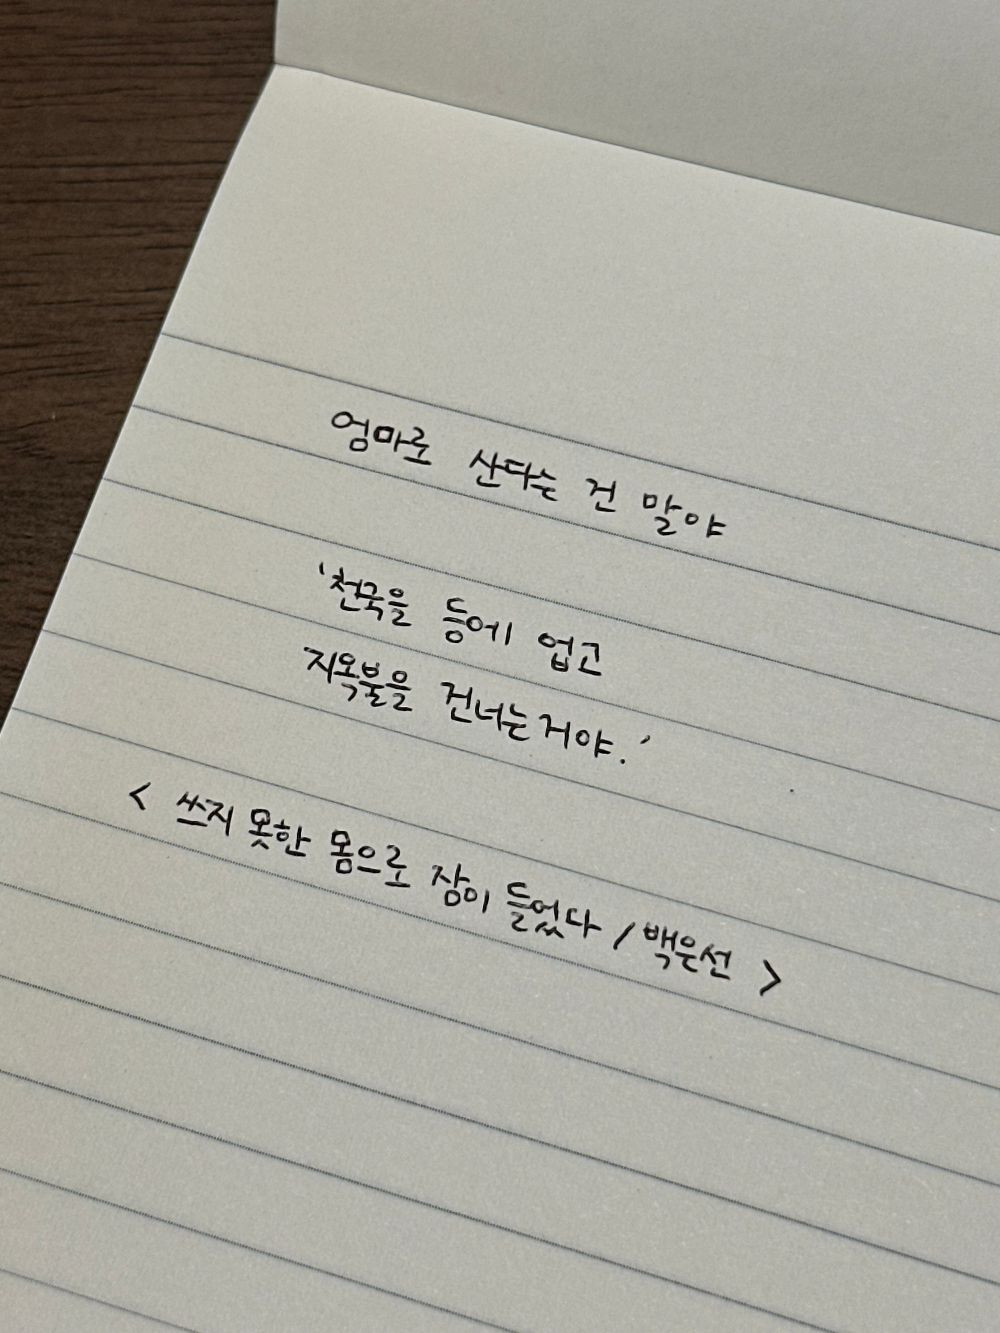 엄마로 산다는 건 말야
'천국을 등에 업고
지옥불을 건너는거야.'
< 쓰지 못한 몸으로 잠이 들었다 / 백은선 >